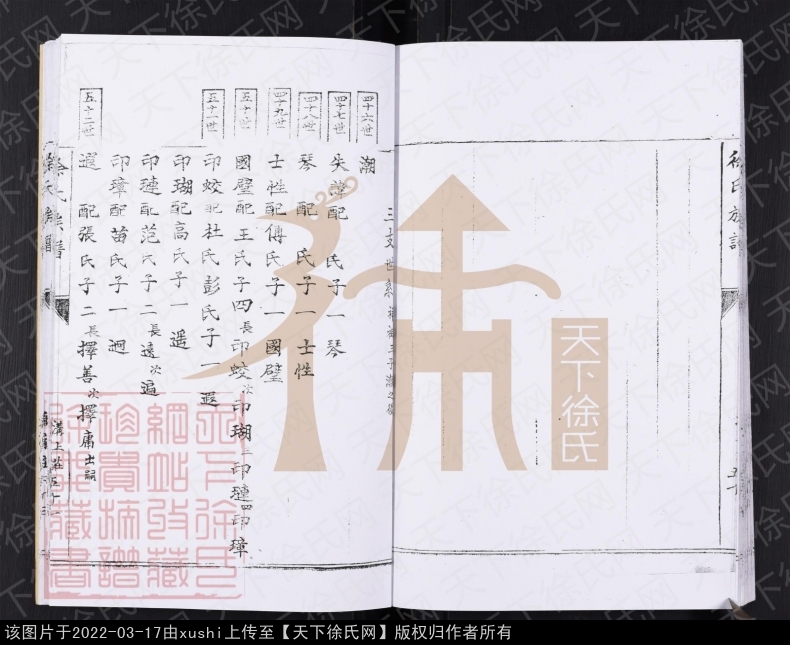 三支世系
四十六世
潮
四十七世
失諱配 氏子一琴
四十八世
琴 配 氏子一士性
四十九世
士性配傅氏子一國璧
五十世
國璧配王氏子四長印蛟次印瑚三印璉四印璋
五十一世
印蛟配杜氏彭氏子一遐
印瑚配高氏子一遥
印璉配范氏子二長遠次遍
印璋配苗氏子一迥
五十二世
遐 配張氏子二長擇善次擇庸出嗣
徐氏族譜
徐氏族譜
天下徐氏
该图片于2022-03-17由xushi上传至【天下徐氏网】版权归作者所有